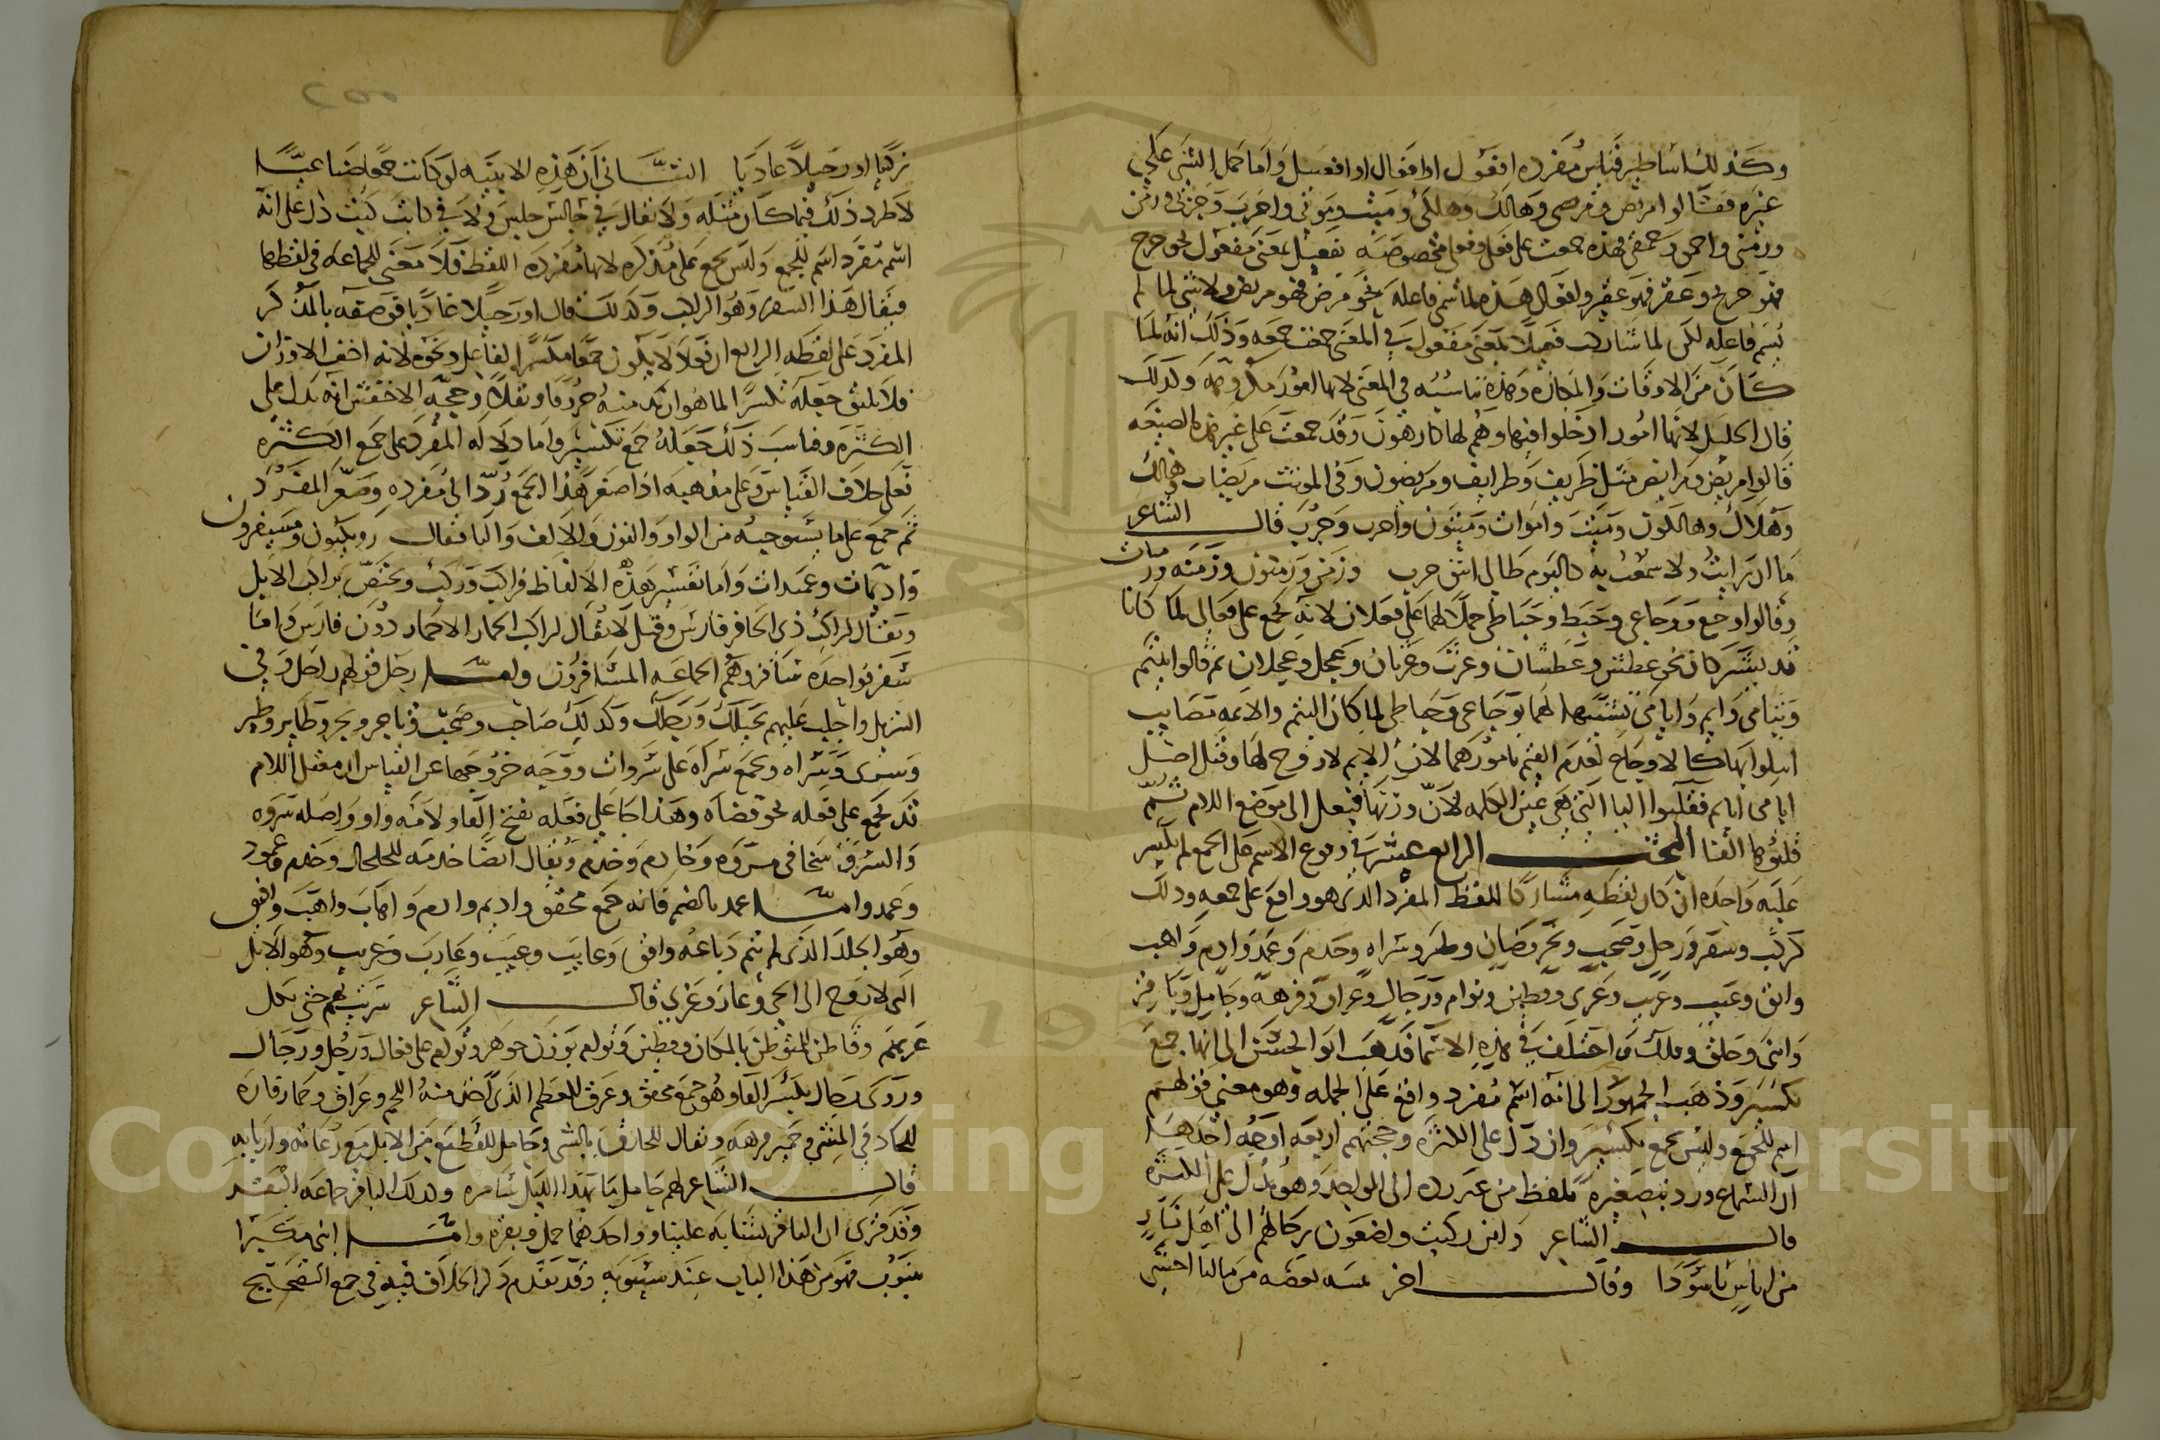 وكذلك اساطير قياس مفرده افعول او افعال او افعيل واما حمل الشي على
غيره فقالوا مريض ومرضى وهالك وهلكى وميت وموتى واجرب وجربى وزمن
وزمنى واحمق وحمقى فهذه جمعت على فعلى وفعلى مخصوصة بفعيل بمعنى مفعول نحو جرح
فهو جريح وعقر فهو عقير ولفعال هذه لما سمي فاعله نحو مرض فهو مريض ولا شي لما لم
يسم فاعله لكن لما شارك فعيلا بمعنى مفعول في المعنى جمعت جمعه وذلك انه لما
كان من الافات والمكاره وهذه تناسبه في المعنى لانها امور مكروهة ولذلك
قال الخليل لانها امور ادخلوا فيها وهم لها كارهون وقد جمعت على غير هذه الصيغه
قالوا مريض ومرايض مثل ظريف وظرايف ومريضون وفي المونث مريضات وهالك
وهلاك وهالكون وميت واموات وميتون واجرب وجرب قال الشاعر
ما ان رايت ولا سمعت به كاليوم طالي اينق جرب وزمن وزمنون وزمنه وزمنات
وقالوا وجع ووجاعى وحبط وحباطى حملا لهما على فعلان لانه يجمع على فعالى لما كانا
قد يشتركان نحو عطش وعطشان وغرث وغرثان وعجل وعجلان ثم قالوا يتيم
ويتامى وايم وايامى تشبيها لهما بوجاعى وحباطى لما كان اليتم والايمه مصايب
ابتلوا بها كالاوجاع لعدم القيم بامورهما لان الايم لا زوج لها وقيل اصل
ايامى ايايم فقلبوا اليا التي هي عين الكلمه لان وزنها فيعل الى موضع اللام ثم
قلبوها الفا البحث الرابع عشر في وقوع الاسم على الجمع لم يكسر
عليه واحده ان كان لفظه مشاركا للفظ المفرد الذي هو واقع على جمعه وذلك
كركب وسفر ورجل وصحب وتجر وضان وطير وسراه وخدم وعمد وادم واهب
وافق وعيب وعزب وغزي وقطين وتوام ورجال وعراق وفرهة وجامل وباقر
وابنى وحلق وفلك مما اختلف في هذه الاسما فذهب ابو الحسن الى انها جمع
تكسير وذهب الجمهور الى انه اسم مفرد واقع على الجمله وهو معنى قولهم
اسم للجمع وليس بجمع تكسير وان دل على الكثرة وحجتهم اربعه اوجه احدها
ان السماع ورد بتصغيره بلفظ من غير رده الى الواحد وهو يدل على الكثره
قال الشاعر واين ركيب واضعون رحالهم الى اهل نار
من اناس باسودا وقال اخر بنيته بعصبة من ماليا اخشى
ركيبا او رجيلا عاديا الثاني ان هذه الابنيه لو كانت جمعا صناعيا
لاطرد ذلك فيما كان مثله ولا يقال في جالس جلس ولا في كاتب كتب دل على انه
اسم مفرد اسم للجمع وليس بجمع على مذكره لانها مفردة اللفظ فلا معنى للجماعه في لفظها
فيقال هذا السفر وهو الركب وكذلك قال او رجيلا عاديا فوصفه بالمذكر
المفرد على لفظه الرابع ان فعلا لا يكون جمعا مكسرا لفاعل ونحوه لانه اخف الاوزان
فلا يليق جعله تكسيرا لما هو ازيد منه حروفا وثقلا وحجة الاخفش انه يدل على
الكثره وفاسب ذلك جعله جمع تكسير واما دلالة المفرد على جمع الكثره
فعلى خلاف القياس وعلى مذهبه اذا صغر هذا الجمع رد الى مفرده وصغر المفرد
ثم جمع على ما يستوجبه من الواو والنون والالف والتا فقال رويكبون ومسيفرون
واديمات وعميدات واما تفسير هذه الالفاظ فراكب وركب ويختص براكب الابل
ويقال لراكب ذي الحافر فارس وقيل لا يقال لراكب الحمار الا حمار دون فارس واما
سفر فواحده مسافر وهم الجماعه المسافرون واما رجل فقولهم راجل وفي
التنزيل واجلب عليهم بخيلك ورجلك وكذلك صاحب وصحب وتاجر وتجر وطاير وطير
وسرى وسراه وتجمع سراه على سروات ووجه خروجهما عن القياس ان معتل اللام
قد يجمع على فعله نحو قضاه وهذا جا على فعله بفتح الفا ولامه واو واصله سروه
والسرف سخا في مروه وخادم وخدم ويقال ايضا خدمه للخلخال وخدم وعمود
وعمد واما عمد بالضم فانه جمع محقق واديم وادم واهاب واهب وافيق
وهو الجلد الذي لم يتم دباغه وافق وعايب وعيب وعازب وعزيب وهو الابل
التي لا تروح الى الحي وغاز وغزي قال الشاعر سريت بهم حتى تكل
غزيهم وقاطن المتوطن بالمكان وقطين وتوام بوزن جوهر وتوام على فعال ورجل ورجال
وروى رجال بكسر الفا وهو جمع محقق وعرق للعظم الذي اخذ منه اللحم وعراق وحمار فاره
للحاد في المشي وحمير فرهه ويقال للحاذق بالشي وجامل للقطيع من الابل مع رعاته واربابه
قال الشاعر لهم جامل ما يهدا الليل سامره وكذلك الباقر جماعه البقر
وقد قرى ان الباقر تشابه علينا وواحدهما جمل وبقره واما ابنى مكبرا
بينون فهو من هذا الباب عند سيبويه وقد تقدم ذكر الخلاف فيه في جمع التصحيح